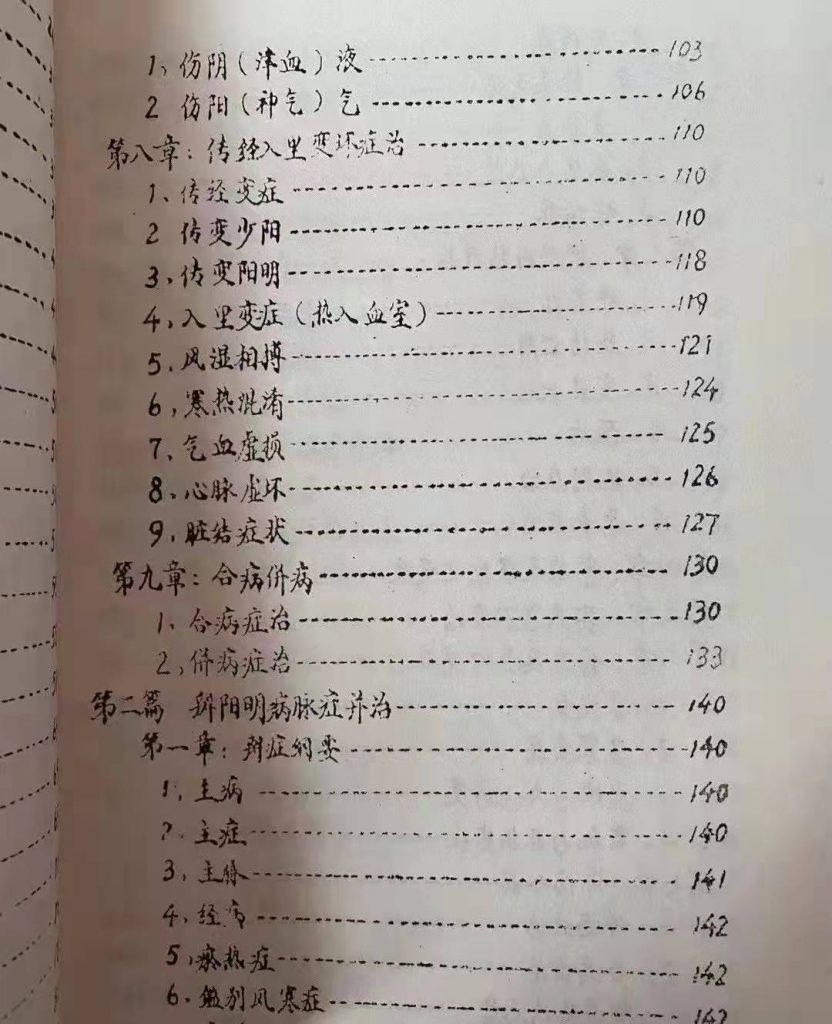 1、伤阴(津血)液------103
2 伤阳(神气)气------106
第八章：传经入里变坏症治------110
1、传经变症------110
2 传变少阳------110
3、传变阳明------118
4、入里变症(热入血室)------119
5、风湿相搏------121
6、寒热混淆------124
7、气血虚损------125
8、心脉虚坏------126
9、脏结症状------127
第九章：合病併病------130
1、合病症治------130
2、併病症治------133
第二篇 辨阳明病脉症并治------140
第一章：辨症纲要------140
1、主病------140
2、主症------140
3、主脉------141
4、经病------142
5、瘀热症------142
6、鉴别风寒症------142